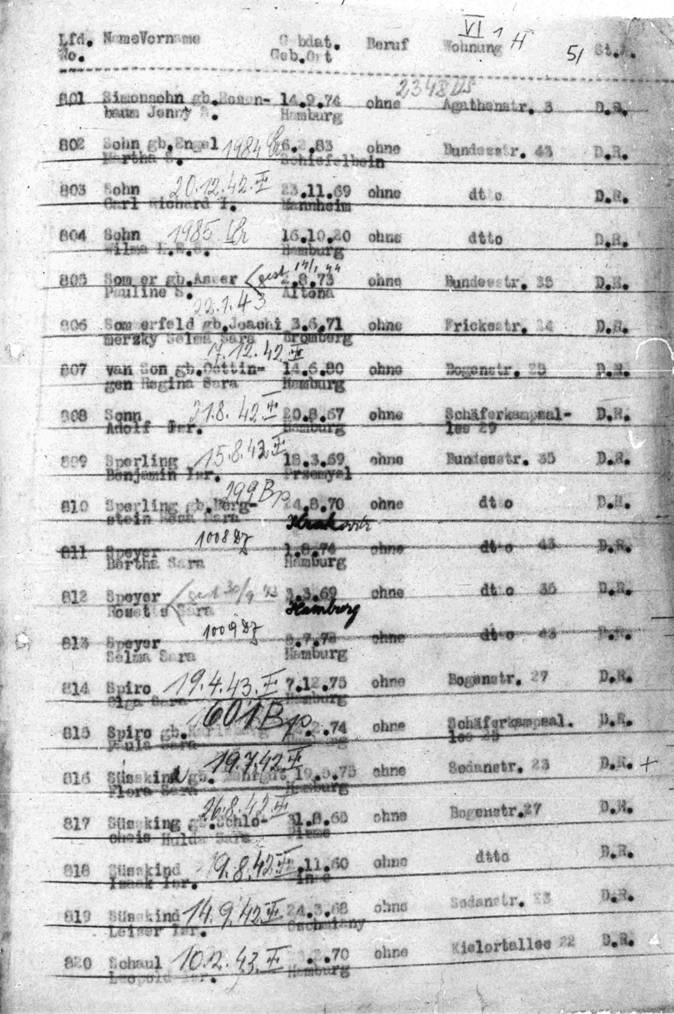 VI 1 H 51
Lfd. NameVorname Gebdat. Beruf Wohnung St.A.
No. Geb.Ort
2348
801 Simonsohn gb.Rosen- 14.9.74 ohne Agathenstr. 3 D.R.
baum Jenny S. Hamburg
802 Sohn gb.Engel 1984 6.2.83 ohne Bundesstr. 43 D.R.
Martha S. Schiefelbein
803 Sohn 20.12.42. 23.11.69 ohne dtto D.R.
Carl Richard I. Mannheim
804 Sohn 1985 16.10.20 ohne dtto D.R.
Wilma S. Hamburg
805 Sommer gb.Asser gest 2.8.73 ohne Bundesstr. 35 D.R.
Pauline S. Altona
22.1.43
806 Sommerfeld gb.Joachi 3.6.71 ohne Frickestr. 24 D.R.
merzky Selma Sara Bromberg
7.12.42
807 van Son gb.Oettin- 14.6.80 ohne Bogenstr. 25 D.R.
gen Regina Sara Hamburg
808 Sonn 21.8.42 20.8.67 ohne Schäferkampsal- D.R.
Adolf Isr. Hamburg lee 29
809 Sperling 15.8.42 18.3.69 ohne Bundesstr. 35 D.R.
Benjamin Isr. Przemysl
199 Bp
810 Sperling gb.Berg- 24.8.70 ohne dtto D.R.
stein Sara Krakau
811 Speyer 1008 1.8.74 ohne dtto 43 D.R.
Bertha Sara Hamburg
812 Speyer gest 30/9 43 3.3.69 ohne dtto 35 D.R.
Rosette Sara Hamburg
813 Speyer 1009 ohne dtto 43 D.R.
Selma Sara Hamburg
814 Spiro 19.4.43. 7.12.75 ohne Bogenstr. 27 D.R.
Olga Sara Hamburg
601 Bp
815 Spiro gb. 2.74 ohne Schäferkampsal. D.R.
Paula Sara lee 25
19.7.42
816 Süsskind gb. ohne Sedanstr. 23 D.R. +
Flora Sara Hamburg
26.8.42
817 Süssking gb.Schlo- 31.8.60 ohne Bogenstr.27 D.R.
Hulda Sara
818 Süsskind 9.8.42 .11.60 ohne dtto D.R.
Isaak Isr.
819 Süsskind 14.9.42 24.3.68 ohne Sedanstr. 23 D.R.
Leiser Isr.
820 Schaul 10.2.43. .70 ohne Kielortallee 22 D.R.
Leopold Isr. Hamburg